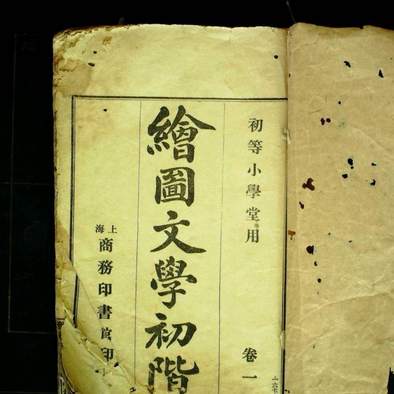 初等小學堂用
卷一
繪圖文學初階
上海
商務印書館印